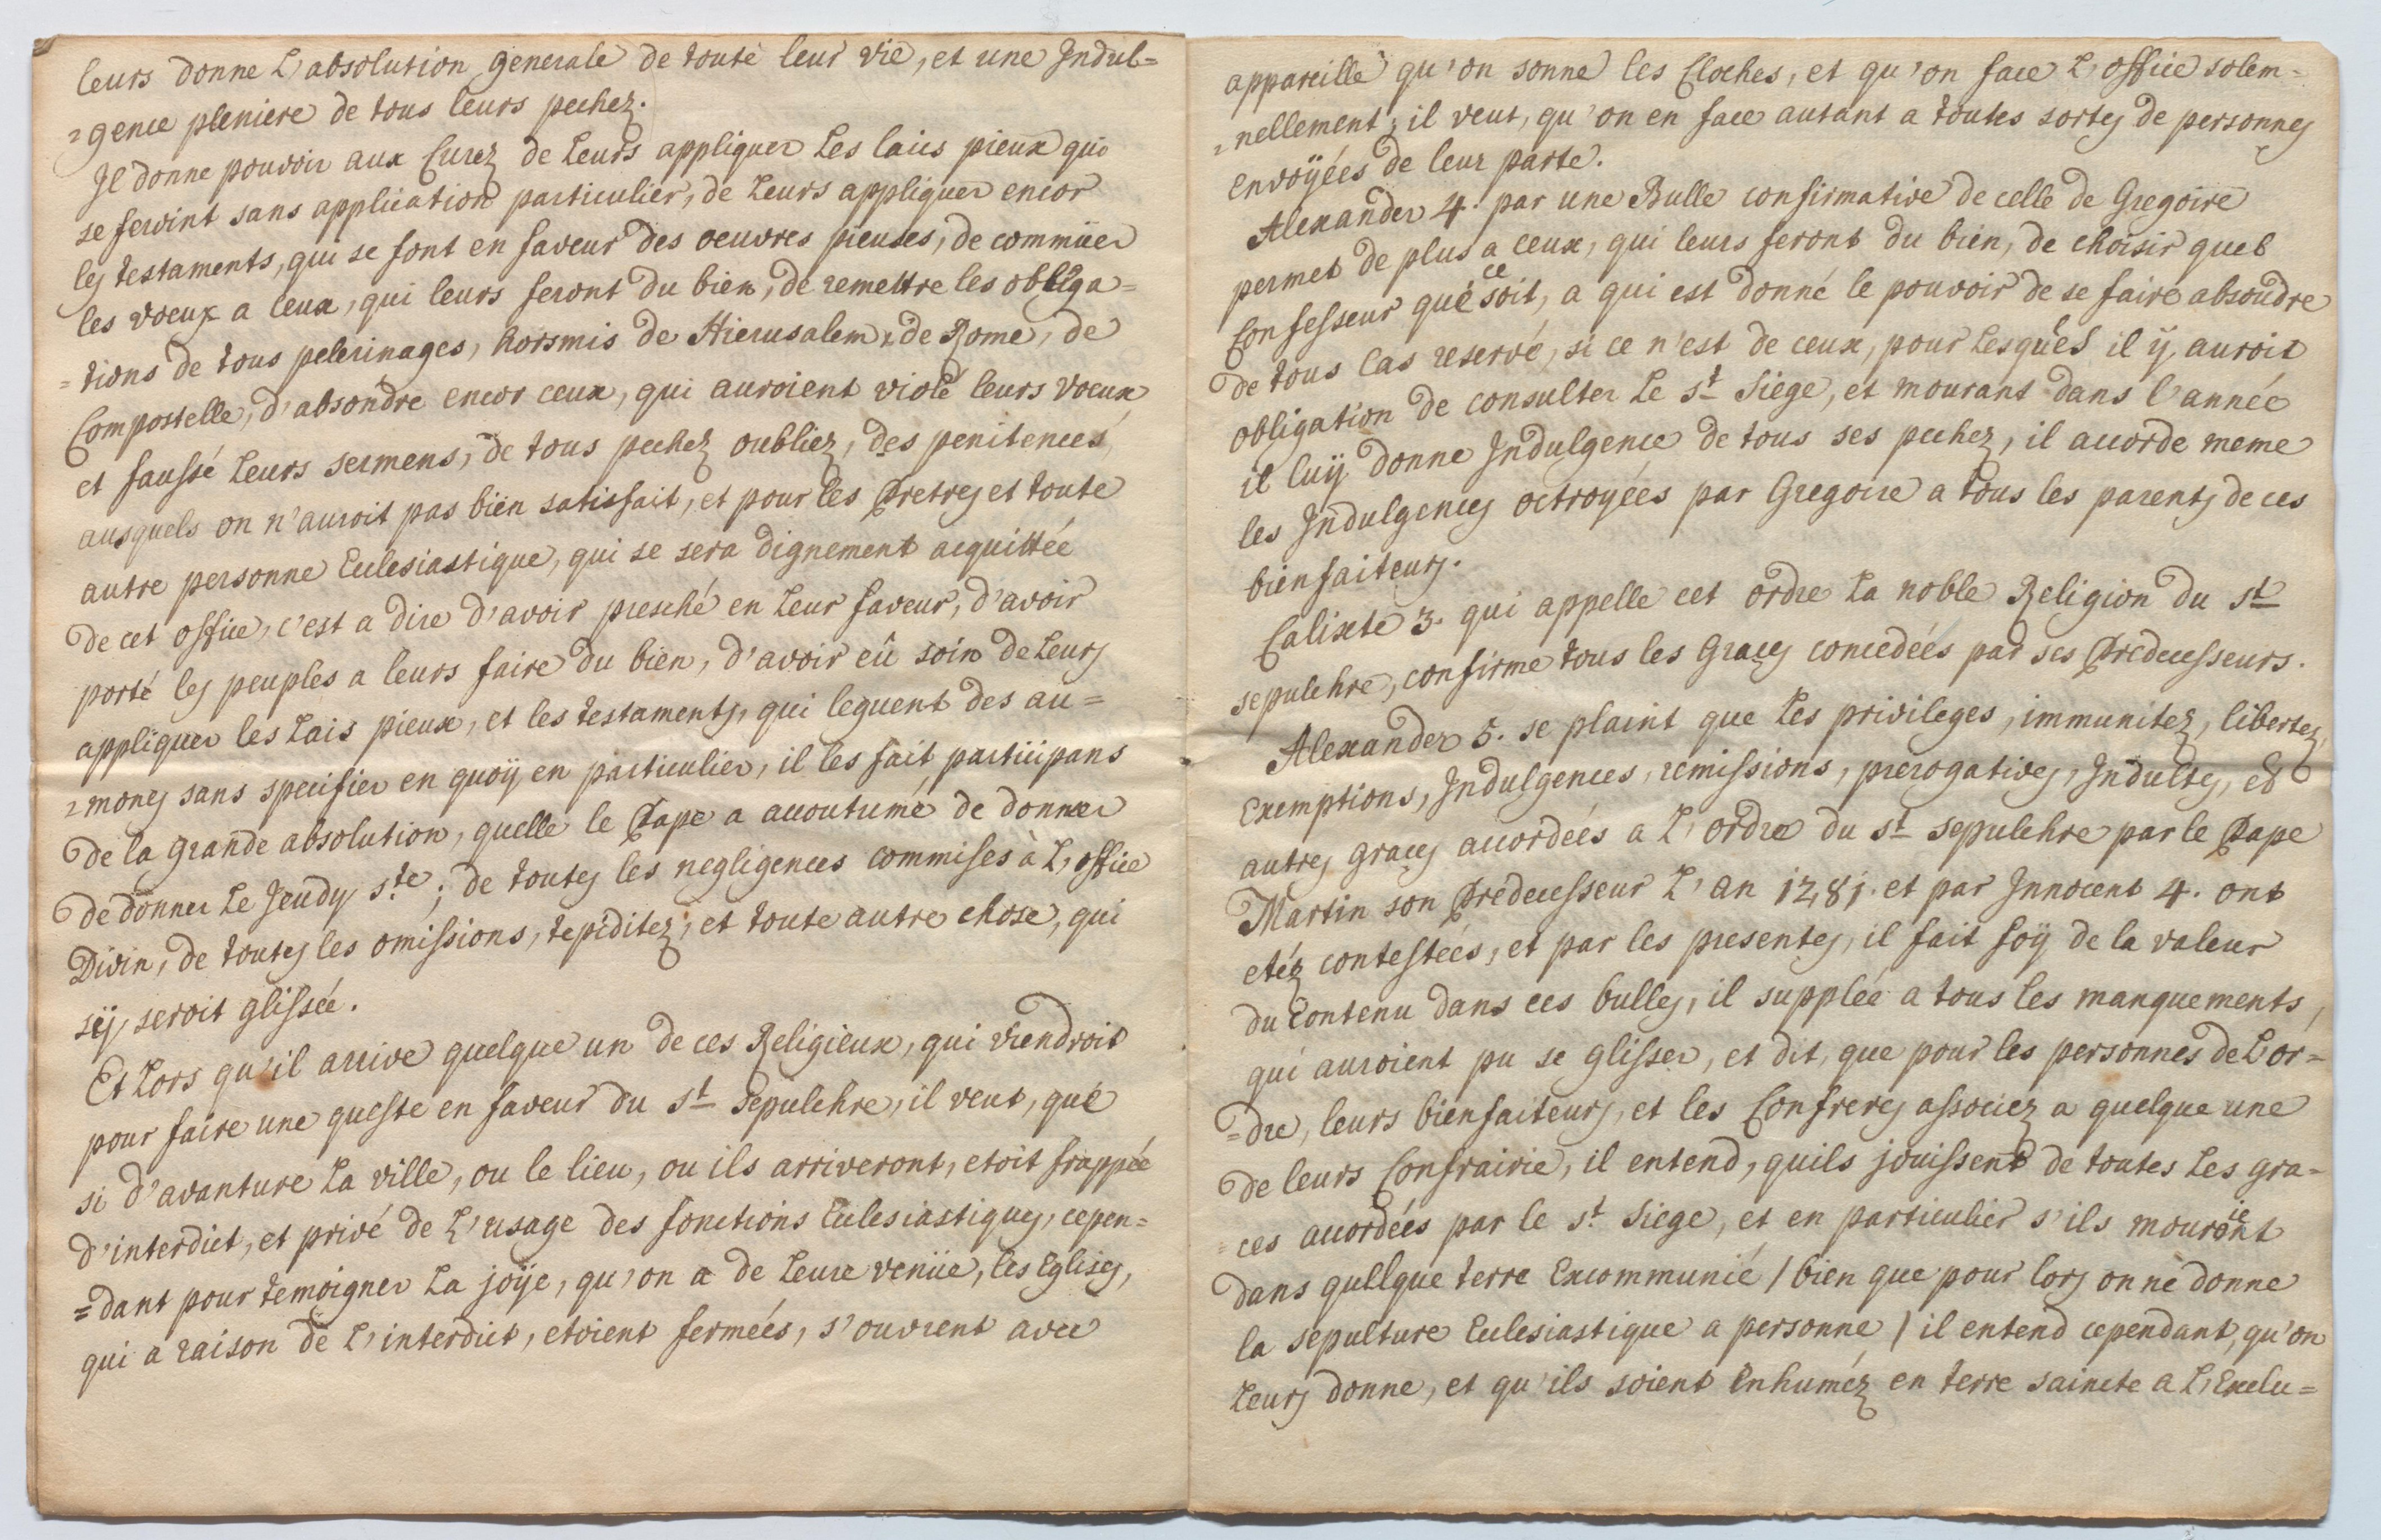 leurs donne L'absolution generale de toute leur vie, et une Indul=
=gence pleniere de tous leurs pechez.
Il donne pouvoir aux Curez de Leurs appliquer Les laiis pieux qui
se feroint sans application particulier, de Leurs appliquer encor
les testaments, qui se font en faveur des oeuvres pieuses, de commüer
les voeux a ceux, qui leurs feront du bien, de remettre les obliga=
=tions de tous pelerinages, horsmis de Hierusalem, de Rome, de
Compostelle, d'absoudre encor ceux, qui auroient violé leurs voeux,
et faussé Leurs sermens, de tous pechez oubliez, des penitences,
ausquels on n'auroit pas bien satisfait, et pour les Pretres et toute
autre personne Eclesiastique, qui se sera dignement acquittée
de cet office, c'est a dire d'avoir presché en Leur faveur, d'avoir
porté les peuples a leurs faire du bien, d'avoir eû soin de Leurs
appliquer les Lais pieux, et les testaments, qui leguent des au=
=mones sans specifier en quoÿ en particulier, il les fait participans
de la grande absolution, quelle le Pape a accoutumé de donner
de donner Le Jeudy Ste; de toutes les negligences commises à L'office
Divin, de toutes les omissions, tepiditez, et toute autre chose, qui
sÿ seroit glissée.
Et Lors qu'il arrive quelque un de ces Religieux, qui viendroit
pour faire une queste en faveur du St Sepulchre, il veut, que
si d'avanture La ville, ou le lieu, ou ils arriveront, etoit frappée
d'interdict, et privé de L'usage des fonctions Eclesiastiques, cepen=
=dant pour temoigner La joÿe, qu'on a de Leure venüe, les Eglises,
qui a raison de L'interdict, etoient fermées, s'ouvrent avec
appareille qu'on sonne les Cloches, et qu'on face L'office solem=
=nellement; il veut, qu'on en face autant a toutes sortes de personnes
envoÿées de leur parte.
Alexander 4. par une Bulle confirmative de celle de Gregoire
permet de plus a ceux, qui leurs feront du bien, de choisir quel
Confesseur que ce soit, a qui est donné le pouvoir de se faire absoudre
de tous cas reservé, si ce n'est de ceux, pour Lesquels il ÿ auroit
obligation de consulter Le St Siege, et mourant dans l'année
il luÿ donne Indulgence de tous ses pechez, il accorde meme
les Indulgences octroyées par Gregoire a tous les parents de ces
bienfaiteurs.
Calixte 3. qui appelle cet ordre La noble Religion du St
sepulchre, confirme tous les Graces concedées par ses Predecesseurs.
Alexander 5. se plaint que Les privileges, immunitez, libertez,
Exemptions, Indulgences, remissions, prerogatives, Indultes, et
autres graces accordées a L'ordre du St sepulchre par le Pape
Martin son Predecesseur L'an 1281. et par Innocent 4. ont
etéz contestées, et par les presentes, il fait foÿ de la valeur
du Contenu dans ces bulles, il supplée a tous Les manquements,
qui auroient pu se glisser, et dit, que pour les personnes de L'or=
=dre, leurs bienfaiteurs, et les Confreres associez a quelque une
de leurs Confrairie, il entend, quils jouissent de toutes Les gra=
=ces accordées par le St Siege, et en particulier s'ils mouroient
dans quelque terre Excommunié / bien que pour lors on ne donne
la sepulture Eclesiastique a personne / il entend cependant, qu'on
Leurs donne, et qu'ils soient Enhuméz en terre saincte a L'Exclu=